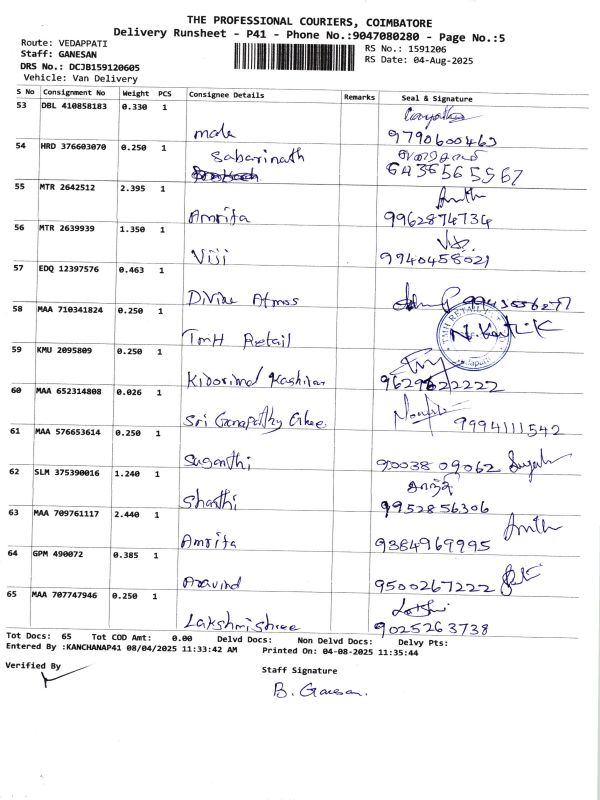 THE PROFESSIONAL COURIERS, COIMBATORE
Delivery Runsheet - P41 - Phone No.:9047080280 - Page No.:5
Route: VEDAPPATI
RS No.: 1591206
Staff: GANESAN
RS Date: 04-Aug-2025
DRS No.: DCJB159120605
Vehicle: Van Delivery
S No Consignment No Weight PCS Consignee Details Remarks Seal & Signature
53 DBL 410858183 0.330 1
mala 9790600463
54 HRD 376603070 0.250 1
Sabarinath
55 MTR 2642512 2.395 1
Amrita 9962874734
56 MTR 2639939 1.350 1
Viji 9940458021
57 EDQ 12397576 0.463 1
Divine Atmos
58 MAA 710341824 0.250 1
TMH Retail
59 KMU 2095809 0.250 1
60 MAA 652314808 0.026 1
Sri Ganapathy 9994111542
61 MAA 576653614 0.250 1
Suganthi 90038 09062
62 SLM 375390016 1.240 1
சாந்தி
Shanthi 9952856306
63 MAA 709761117 2.440 1
Amrita 9384969995
64 GPM 490072 0.385 1
Aravind 9500267222
65 MAA 707747946 0.250 1
Lakshmishree 9025263738
Tot Docs: 65 Tot COD Amt: 0.00 Delvd Docs: Non Delvd Docs: Delvy Pts:
Entered By :KANCHANAP41 08/04/2025 11:33:42 AM Printed On: 04-08-2025 11:35:44
Verified By
Staff Signature
B. Ganesan.